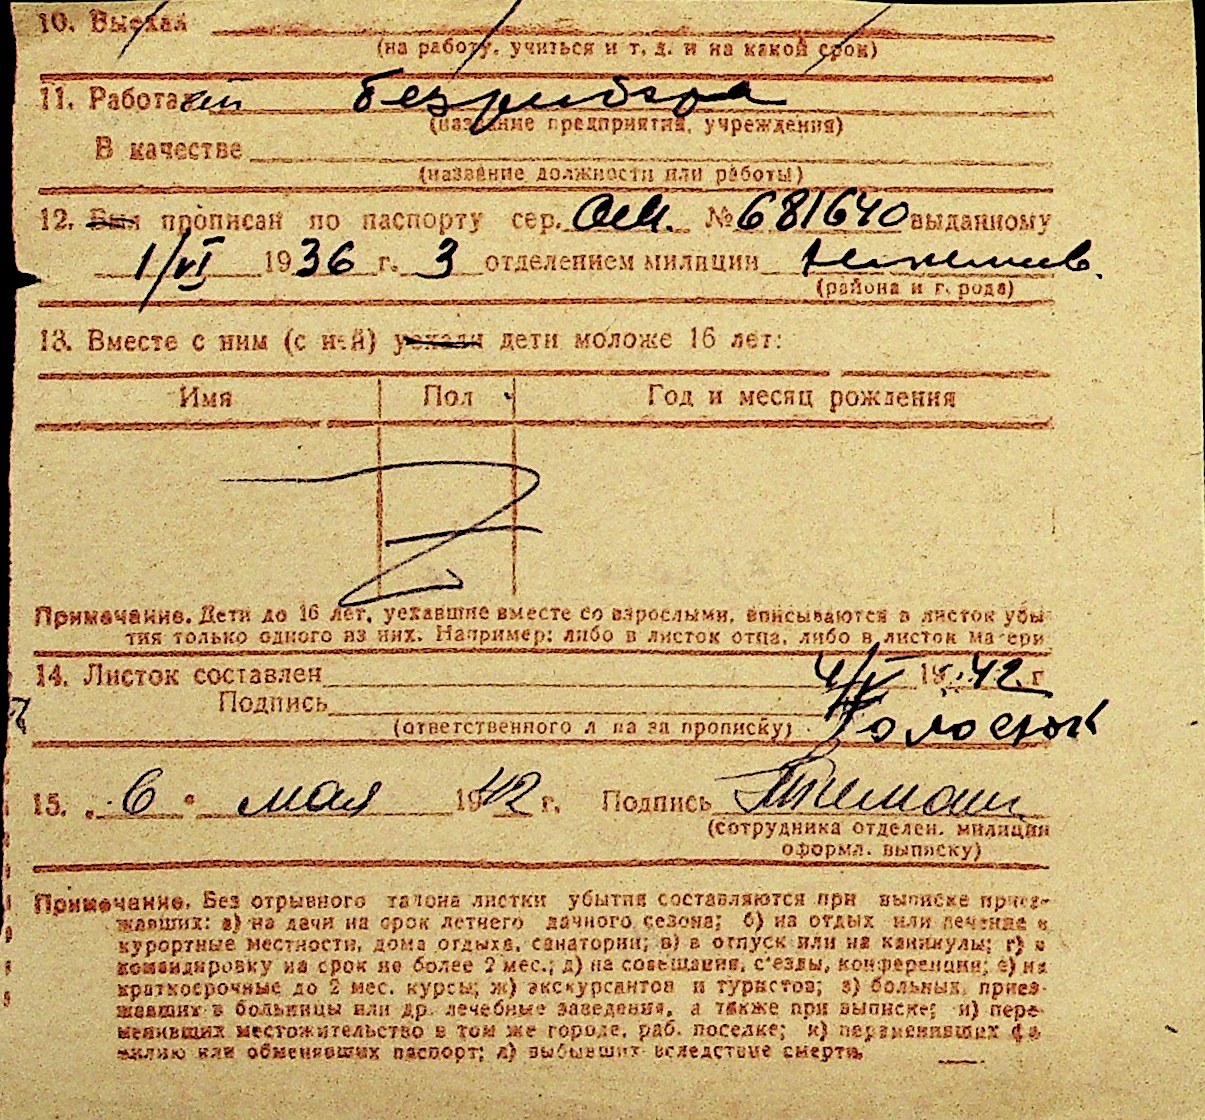 10. Выехал
(на работу, учиться и т. д. и на какой срок)
11. Работает
(название предприятия, учреждения)
В качестве
(название должности или работы)
12. Был прописан по паспорту сер. № 681640 выданному
1/VI 1936 г. 3 отделением милиции
(района и города)
13. Вместе с ним (с ней) уехали дети моложе 16 лет:
Имя Пол Год и месяц рождения
Примечание. Дети до 16 лет, уехавшие вместе со взрослыми, вписываются в листок убы-
тия только одного из них. Например: либо в листок отца, либо в листок матери
14. Листок составлен 4/V 1942 г
Подпись
(ответственного лица за прописку)
15. „6“ мая 1942 г. Подпись
(сотрудника отделен. милиции
оформл. выписку)
Примечание. Без отрывного талона листки убытия составляются при выписке приез-
жавших: а) на дачи на срок летнего дачного сезона; б) на отдых или лечение в
курортные местности, дома отдыха, санатории; в) в отпуск или на каникулы; г) в
командировку на срок не более 2 мес.; д) на совещания, с'езды, конференции; е) на
краткосрочные до 2 мес. курсы; ж) экскурсантов и туристов; з) больных, приез-
жавших в больницы или др. лечебные заведения, а также при выписке; и) пере-
менивших местожительство в том же городе, раб. поселке; к) переменивших фа-
милию или обменявших паспорт; л) выбывших вследствие смерти.